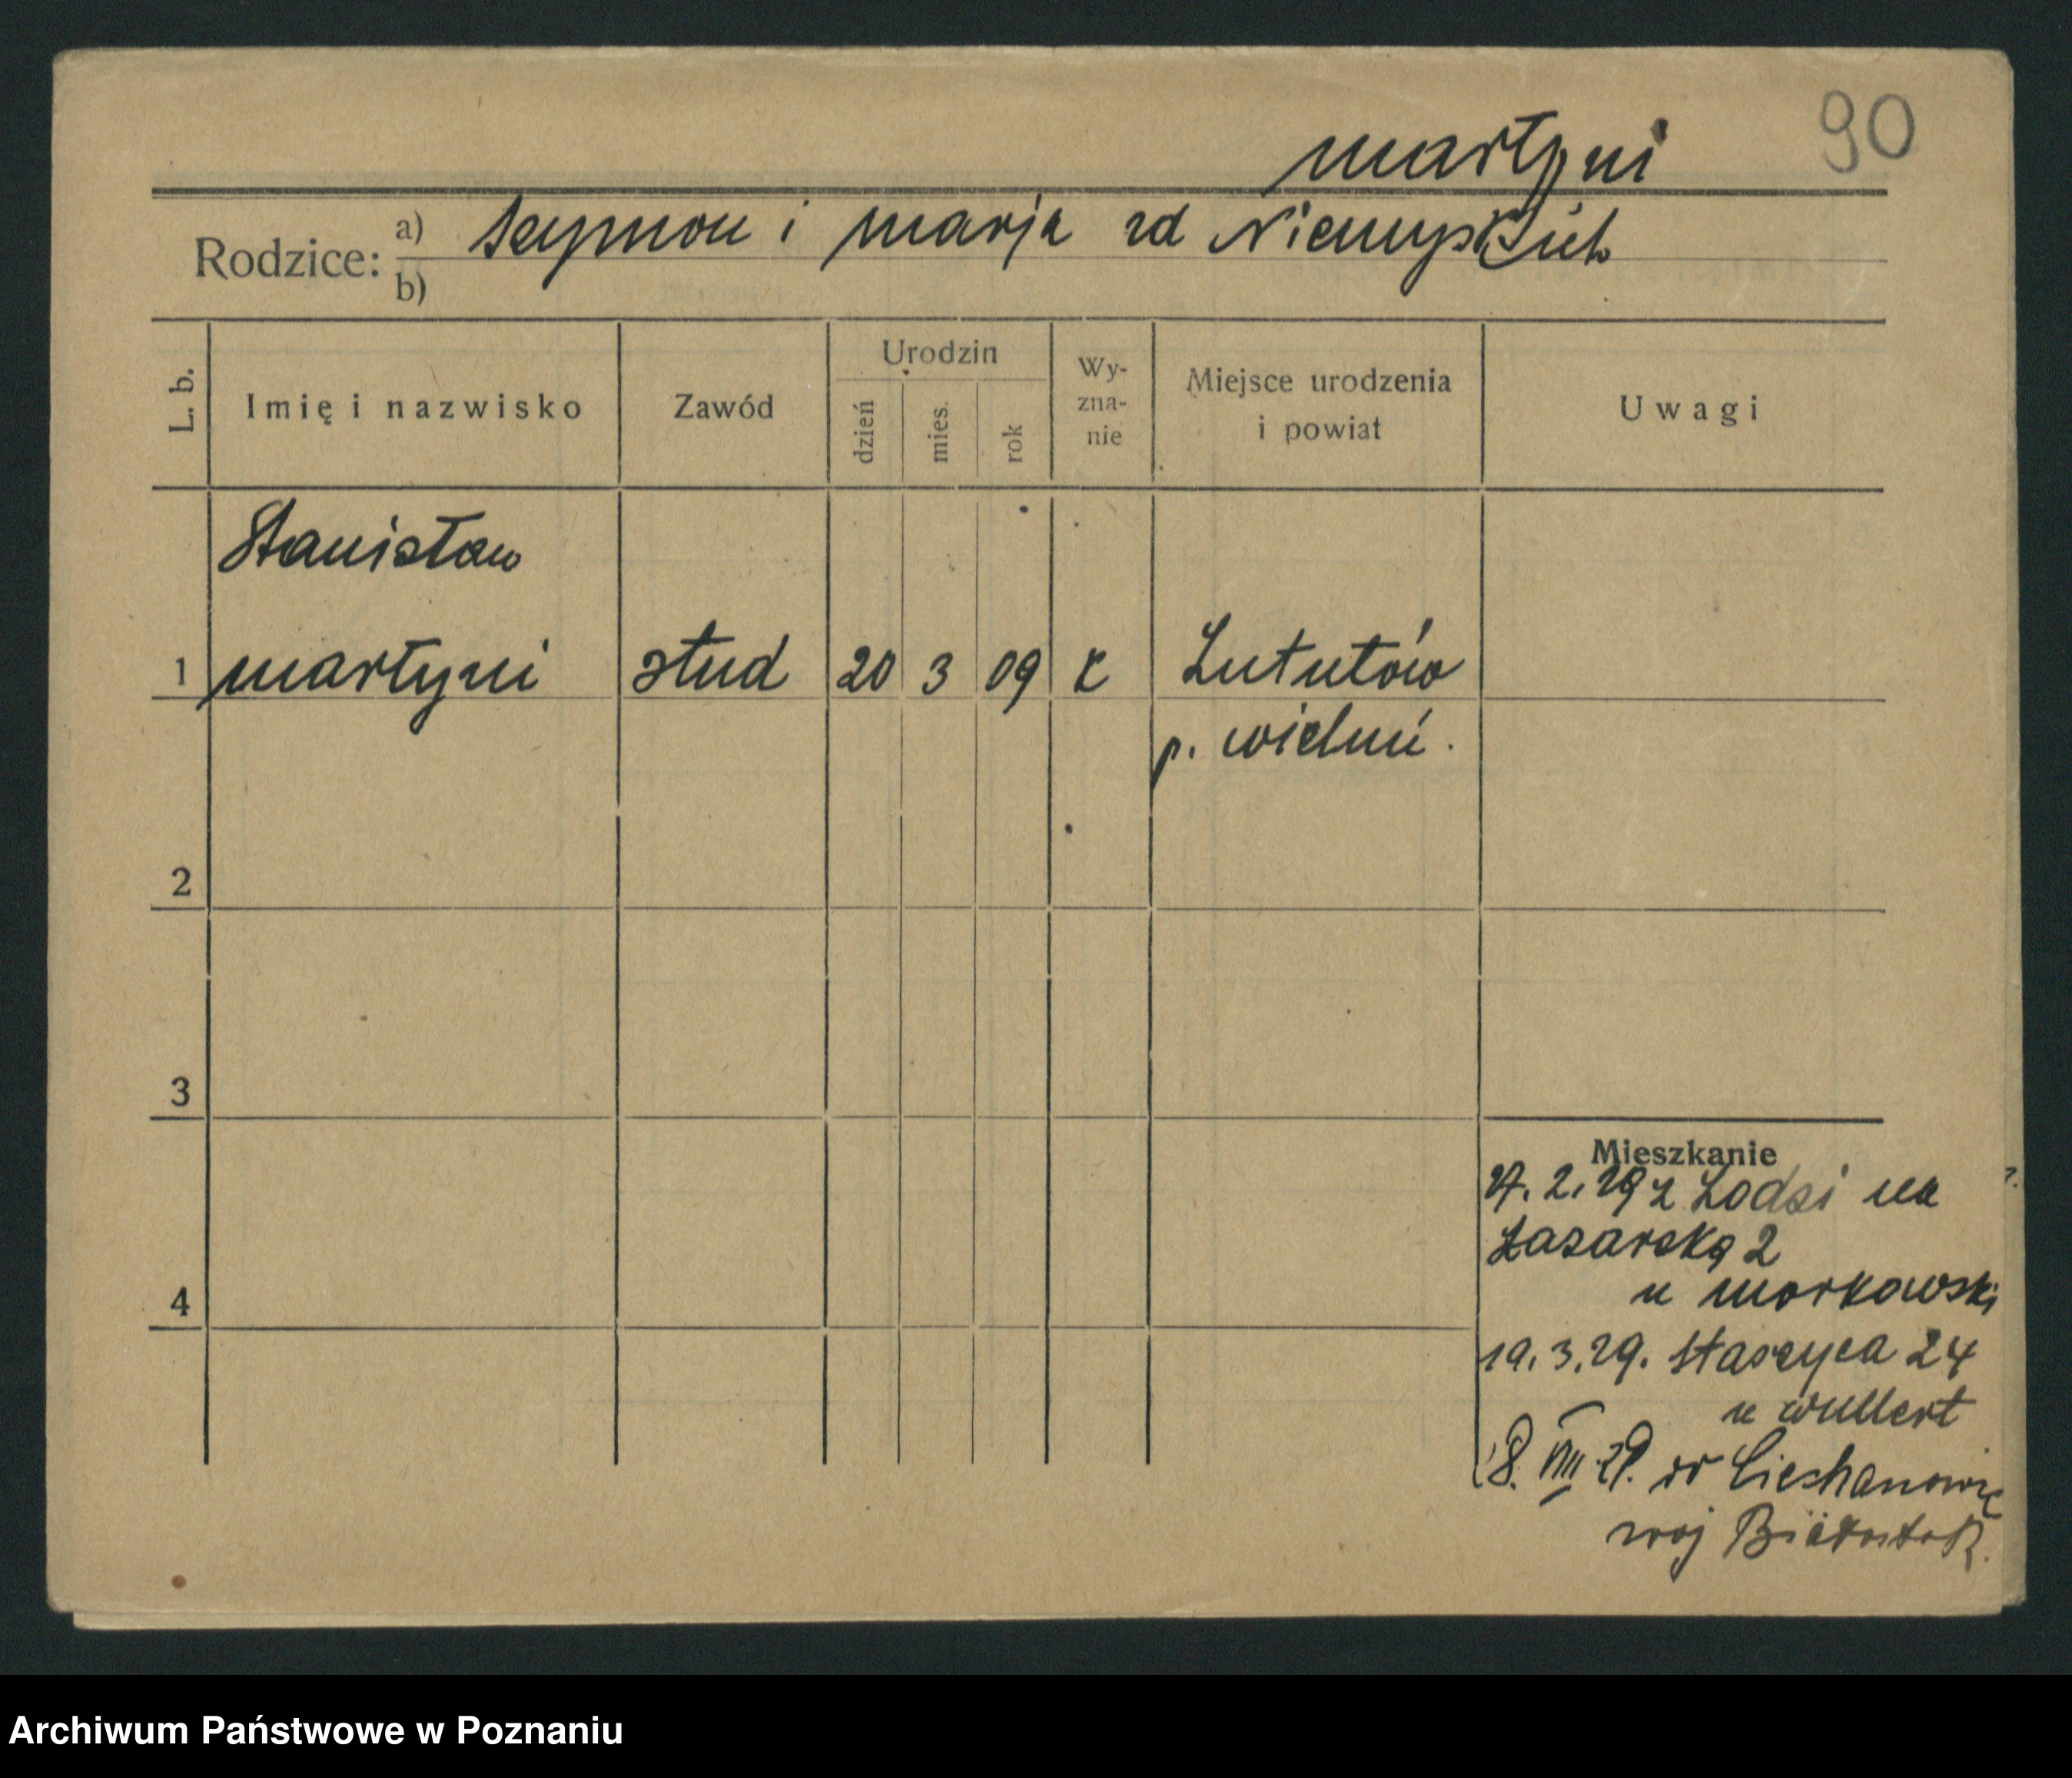 90
martyni
Rodzice: a) Szymon i marja zd Niemyskich
b)
L. b.
Imię i nazwisko
Zawód
Urodzin
dzień
mies.
rok
Wy-
zna-
nie
Miejsce urodzenia
i powiat
Uwagi
Stanisław
1 martyni stud 20 3 09 k Lututów
p. wieluń.
2
3
4
Mieszkanie
2. 29 z Łodzi na
Łazarską 2
u morkowski
19. 3. 29. Staszyca 24
u wullert
8. VIII. 29. do Ciechanowic
woj Białostok.
Archiwum Państwowe w Poznaniu